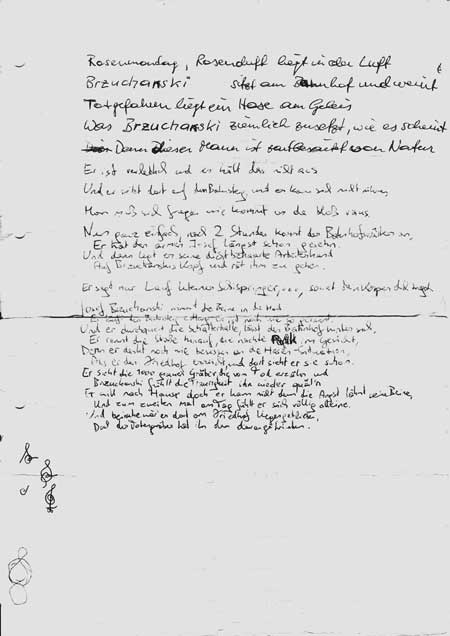 Rosenmontag, Rosenduft liegt in der Luft
Brzuchanski sitzt am Bahnhof und weint
Totgefahren liegt ein Hase am Geleis
Was Brzuchanski ziemlich zusetzt, wie es scheint
Denn dieser Mann ist zartbesaitet von Natur
Er ist verletzlich und er hält das nicht aus
Und er sitzt dort auf dem Bahnsteig, und er kann sich nicht rühren
Man muß sich fragen wie kommt er da bloß raus
Nun ganz einfach, nach 2 Stunden kommt der Bahnhofswärter an,
Er hat den armen Josef längst schon gesehn
Und dann legt er seine dicht behaarte Arbeiterhand
Auf Brzuchanskis Kopf und rät ihm zu gehen.
Er sagt nur Lauf
Josef Brzuchanski nimmt die Beine in die Hand
Und er durchquert die Schalterhalle, lässt den Bahnhof hinter sich,
Er rennt die Straße hinauf, die nackte Panik im Gesicht,
Denn er denkt noch wie besessen an die Hasen-Situation,
Als er den Friedhof erreicht, und dort sieht er sie schon.
Er sieht die 1000 grauen Gräber die vom Tod erzähln und
Brzuchanski fühlt die Traurigkeit ihn wieder quäln
Er will nach Hause doch er kann nicht denn die Angst lähmt seine Beine,
Und zum zweiten Mal am Tag fühlt er sich völlig alleine.
Und beinahe wär er dort am Friedhof liegengeblieben,